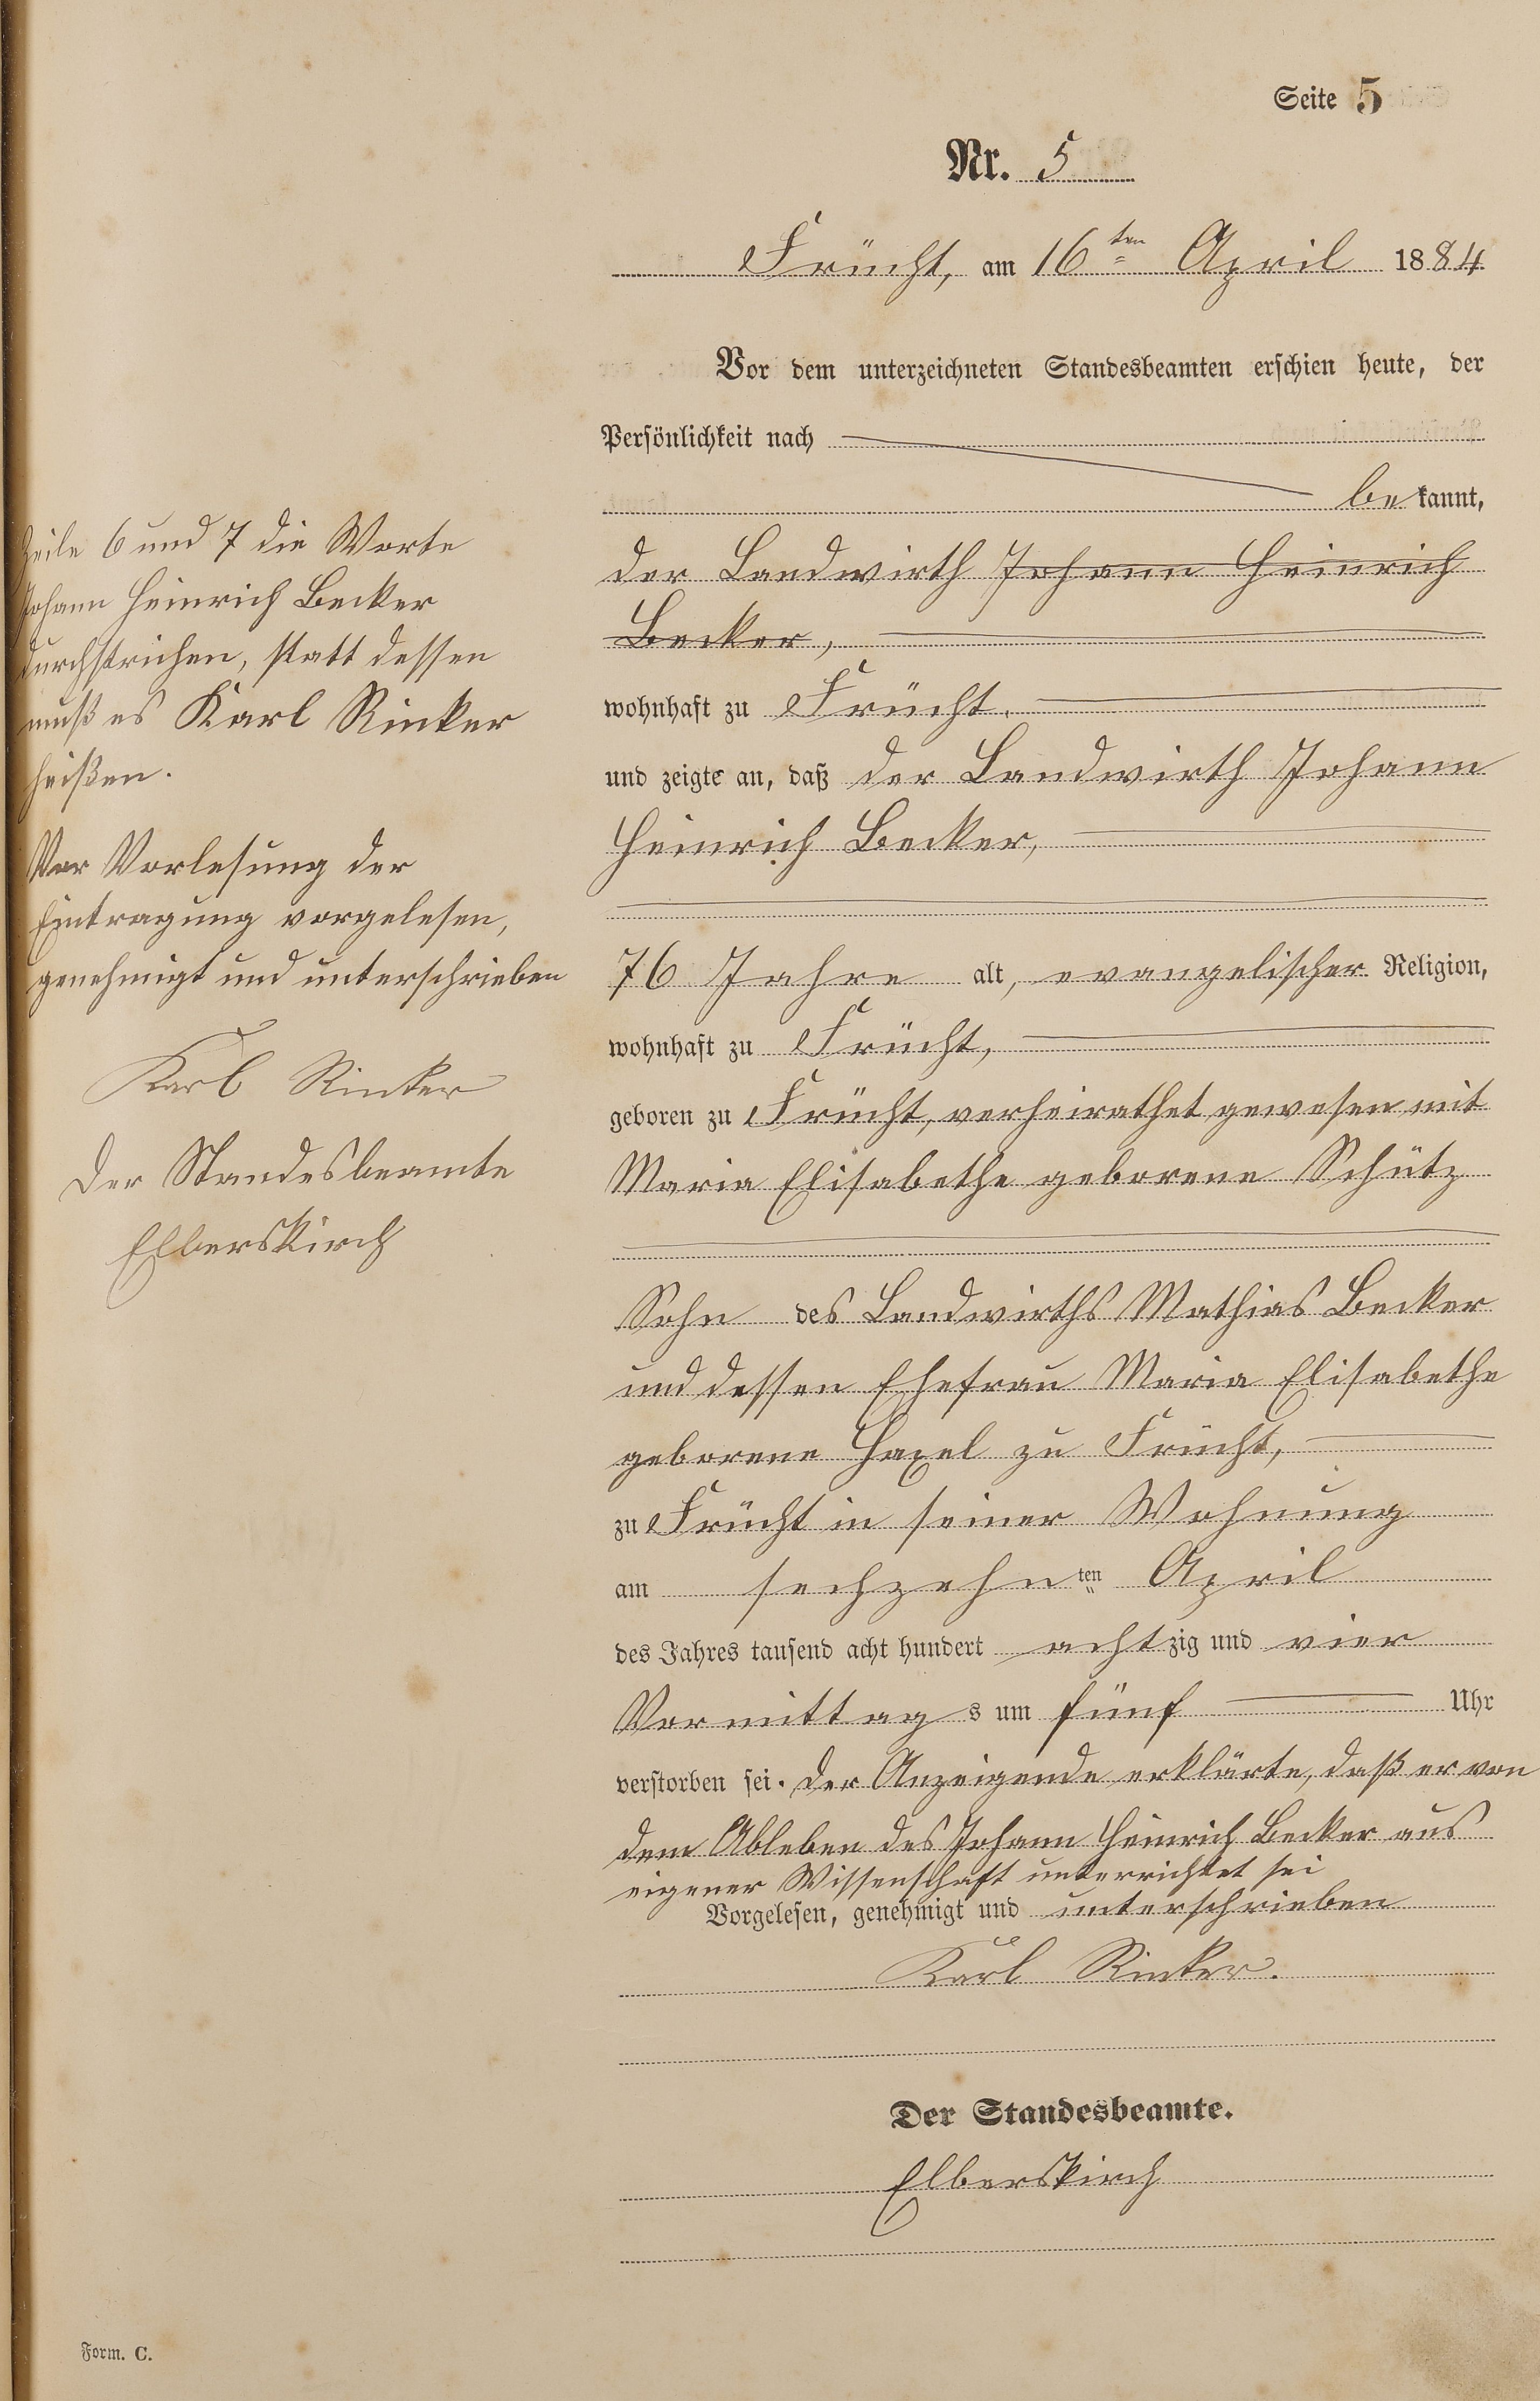 Seite 5
Nr. 5
Frücht, am 16ten April 1884
Vor dem unterzeichneten Standesbeamten erschien heute, der
Persönlichkeit nach
bekannt,
der Landwirth Johann Heinrich
Becker,
wohnhaft zu Frücht.
und zeigte an, daß der Landwirth Johann
Heinrich Becker,
76 Jahre alt, evangelischer Religion,
wohnhaft zu Frücht,
geboren zu Frücht, verheirathet gewesen mit
Maria Elisabethe geborene Schütz
Sohn des Landwirths Mathias Becker
und dessen Ehefrau Maria Elisabethe
geborene Haxel zu Frücht,
zu Frücht in seiner Wohnung
am sechzehnten April
des Jahres tausend acht hundert achtzig und vier
Vormittags um fünf Uhr
verstorben sei. Der Anzeigende erklärte, daß er von
dem Ableben des Johann Heinrich Becker aus
eigener Wissenschaft unterrichtet sei
Vorgelesen, genehmigt und unterschrieben
Karl Rinker.
Der Standesbeamte.
Elberskirch
Zeile 6 und 7 die Worte
Johann Heinrich Becker
durchstrichen, statt dessen
muß es Karl Rinker
heißen.
Vor Vorlesung der
Eintragung vorgelesen,
genehmigt und unterschrieben
Karl Rinker
Der Standesbeamte
Elberskirch
Form. C.